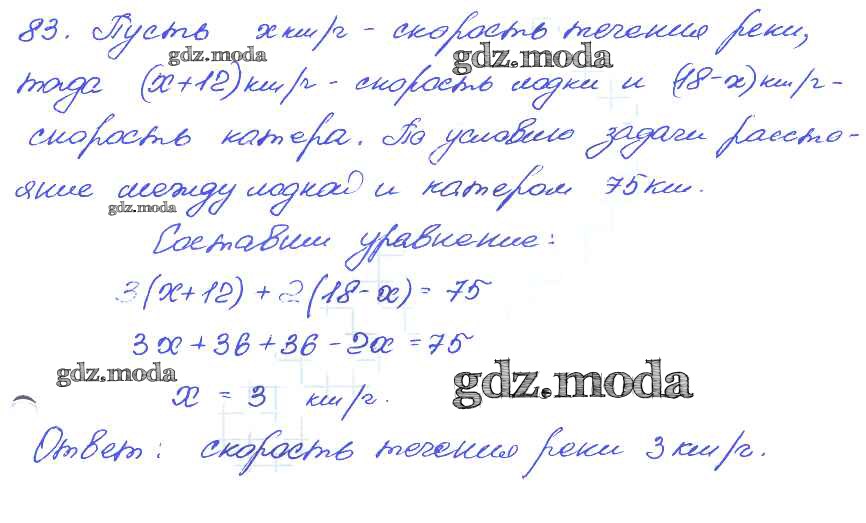 83. Пусть х км/ч - скорость течения реки,
gdz.moda
gdz.moda
тогда (х+12) км/ч - скорость лодки и (18-х) км/ч -
скорость катера. По условию задачи рассто-
яние между лодкой и катером 75 км.
gdz.moda
Составим уравнение:
3(х+12) + 2(18-х) = 75
3х + 36 + 36 - 2х = 75
gdz.moda
gdz.moda
х = 3 км/ч.
Ответ: скорость течения реки 3 км/ч.